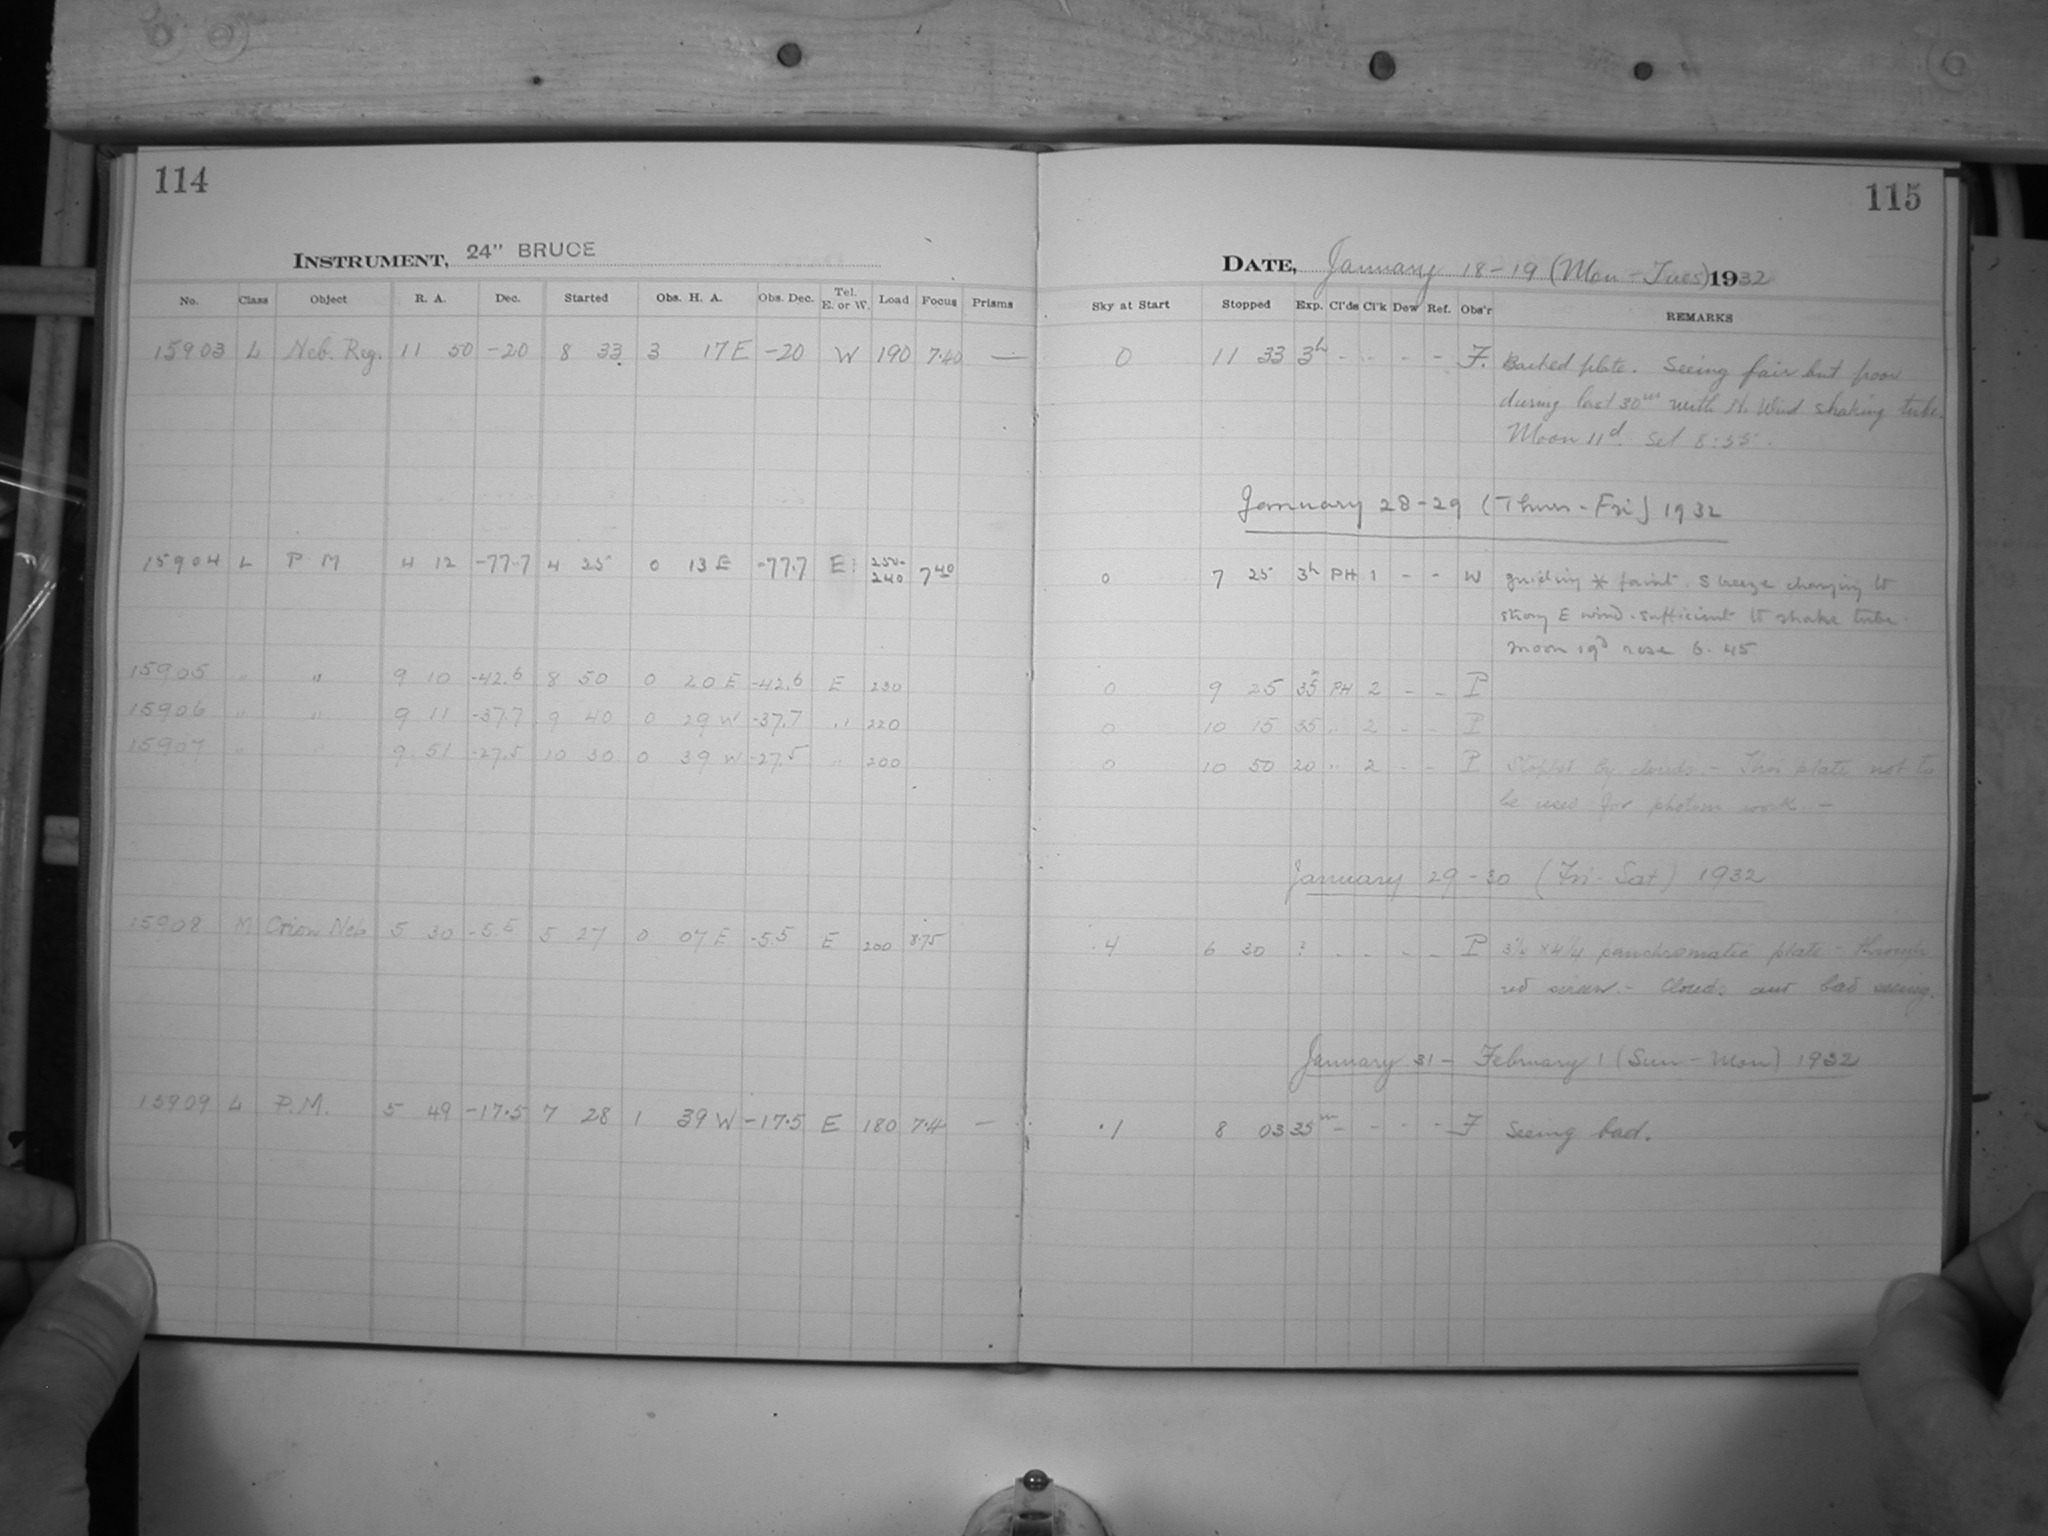 114
115
INSTRUMENT, 24" BRUCE
DATE, January 18-19 (Mon - Tues) 1932
No. Class Object R. A. Dec. Started Obs. H. A. Obs. Dec. Tel. E. or W. Load Focus Prisms Sky at Start Stopped Exp. Cl'ds Cl'k Dew Ref. Obs'r REMARKS
15903 L Neb. Reg. 11 50 -20 8 33 3 17 E -20 W 190 7.40 — 0 11 33 3h - - - - F. Backed plate. Seeing fair but poor
during last 30m with N. Wind shaking tube.
Moon 11d. Set 8:55.
January 28-29 (Thurs - Fri) 1932
15904 L P M 4 12 -77.7 4 25 0 13 E -77.7 E 250-240 7 40 0 7 25 3h PH 1 - - W guiding * faint. S breeze changing to
strong E wind. sufficient to shake tube.
moon 19d rose 6. 45
15905 " " 9 10 -42.6 8 50 0 20 E -42.6 E 230 0 9 25 35 PH 2 - - P
15906 " " 9 11 -37.7 9 40 0 29 W -37.7 " 220 0 10 15 35 " 2 - - P
15907 " " 9 51 -27.5 10 30 0 39 W -27.5 " 200 0 10 50 20 " 2 - - P Stopped by clouds - This plate not to
be used for photom work. -
January 29-30 (Fri - Sat) 1932
15908 M Orion Neb 5 30 -5.5 5 27 0 07 E -5.5 E 200 8.75 .4 6 30 : . - - - P 3¼ x 4¼ panchromatic plate - through
red screen. - Clouds and bad seeing.
January 31 - February 1 (Sun - Mon) 1932
15909 L P.M. 5 49 -17.5 7 28 1 39 W -17.5 E 180 7.4 — .1 8 03 35m - - - - F Seeing bad.